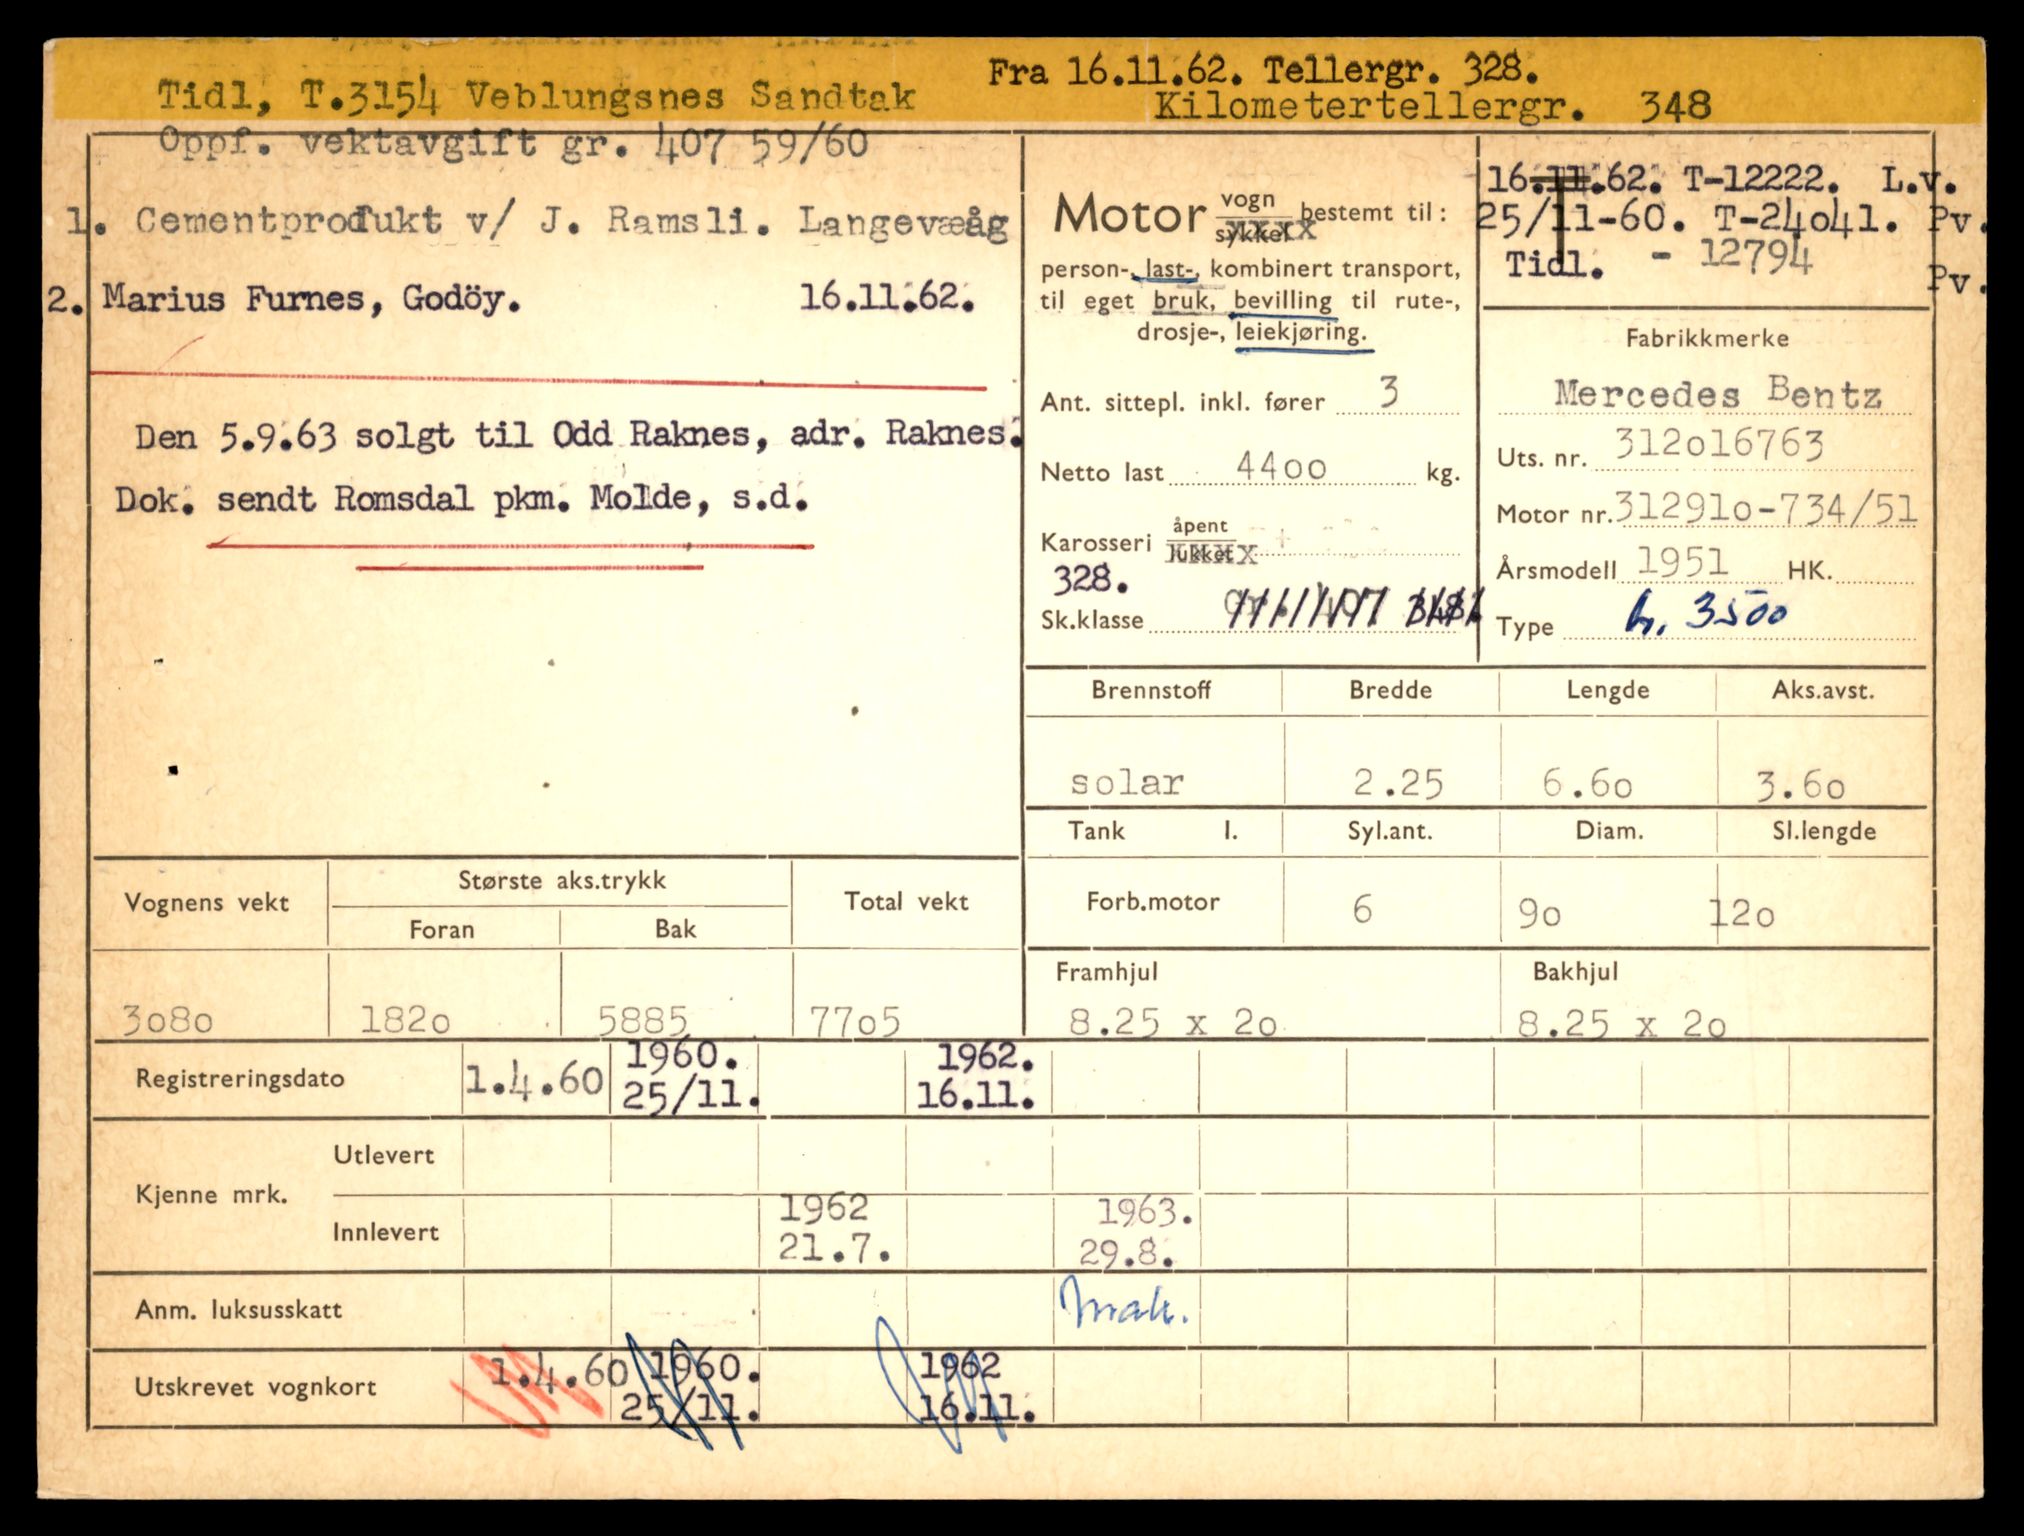 Fra 16.11.62. Tellergr. 328.
Tidl, T.3154 Veblungsnes Sandtak
Kilometertellergr. 348
Oppf. vektavgift gr. 407 59/60
1. Cementprodukt v/ J. Ramsli. Langevæåg
2. Marius Furnes, Godöy. 16.11.62.
Den 5.9.63 solgt til Odd Raknes, adr. Raknes.
Dok. sendt Romsdal pkm. Molde, s.d.
Motor vogn sykkel bestemt til:
person-, last-, kombinert transport,
til eget bruk, bevilling til rute-,
drosje-, leiekjøring.
Ant. sittepl. inkl. fører 3
Netto last 4400 kg.
Karosseri åpent lukket
328.
Sk.klasse
16.11.62. T-12222. L.v.
25/11-60. T-24041. Pv.
Tidl. - 12794
Pv.
Fabrikkmerke
Mercedes Bentz
Uts. nr. 312016763
Motor nr. 312910-734/51
Årsmodell 1951 HK.
Type L. 3500
Brennstoff Bredde Lengde Aks.avst.
solar 2.25 6.60 3.60
Tank l. Syl.ant. Diam. Sl.lengde
Forb.motor 6 90 120
Framhjul Bakhjul
8.25 x 20 8.25 x 20
Vognens vekt Største aks.trykk Total vekt
Foran Bak
3080 1820 5885 7705
Registreringsdato 1.4.60 1960. 25/11. 1962. 16.11.
Kjenne mrk. Utlevert
Innlevert 1962 21.7. 1963. 29.8.
Anm. luksusskatt Mak.
Utskrevet vognkort 1.4.60 1960. 25/11. 1962 16.11.